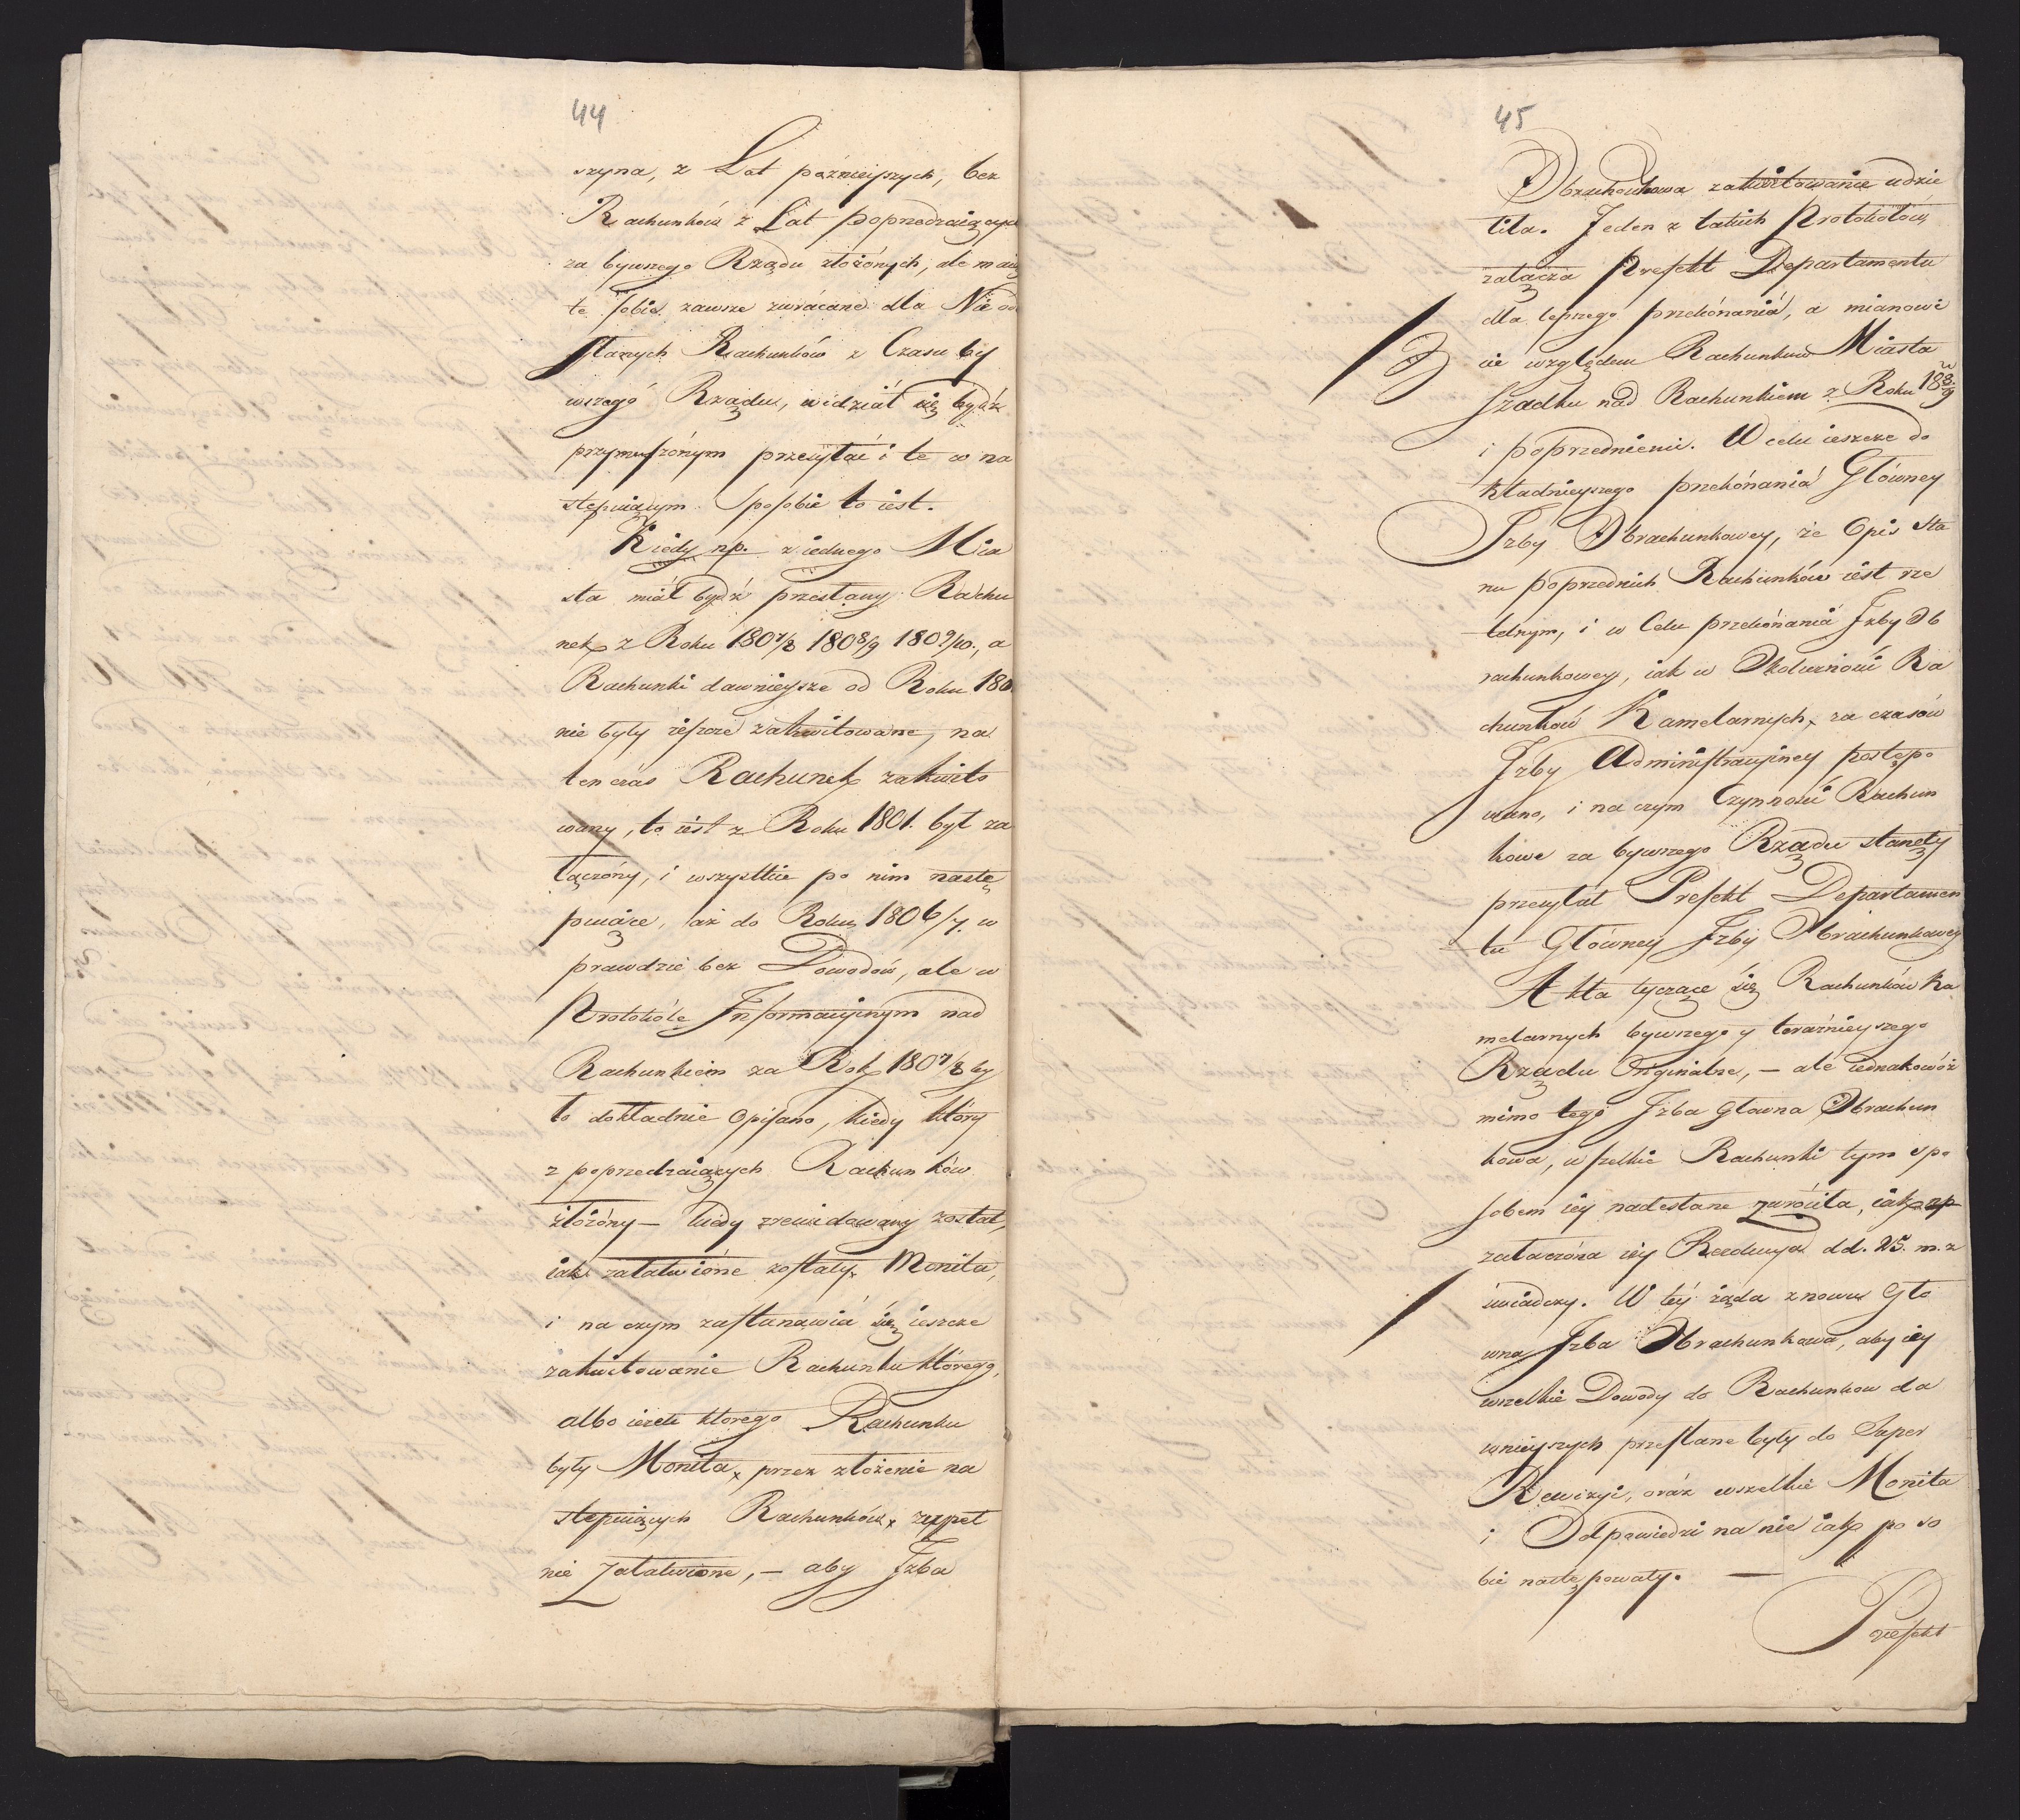 44
szyna, z Lat późnieyszych, bez
Rachunków z Lat poprzedzaiących
za bywszego Rządu złożonych, ale maiąc
te sobie zawsze zwracane dla Nieode
słanych Rachunków z Czasu by
wszego Rządu, widział się bydź
przymuszonym przesyłać i te w na
stępuiącym Sposobie to iest.
Kiedy np. z iednego Mia
sta miał bydź przesłany Rachu
nek z Roku 1807/8 1808/9 1809/10., a
Rachunki dawnieysze od Roku 180
nie były ieszcze zakwitowane, na
ten czas Rachunek zakwito
wany, to iest z Roku 1801. był za
łączony, i wszystkie po nim nastę
puiące, aż do Roku 1806/7. w
prawdzie bez Dowodów, ale w
Protokóle Informacyinym nad
Rachunkiem za Rok 1807/8 by
ło dokładnie Opisano, kiedy który
z poprzedzaiących Rachunków
złożony – kiedy zrewidowany został,
iak załatwione zostały Monita,
i na czym zastanawia się ieszcze
zakwitowanie Rachunku którego,
albo ieżeli ktorego Rachunku
były Monita, przez złożenie na
stępuiących Rachunków, zupeł
nie Załatwione, – aby Izba
45
Obrachunkowa zakwitowanie udzie
liła. Jeden z takich Protokołów
załącza Prefekt Departamentu
dla lepszego przekonania, a mianowi
cie względem Rachunków Miasta
Szadku nad Rachunkiem z Roku 180 8/9
i poprzedniemi. W celu ieszcze do
kładnieyszego przekonania Główney
Izby Obrachunkowey, że Opis Sta
nu poprzednich Rachunków iest rze
telnym, i w Celu przekonania Izby Ob
rachunkowey, iak w Okoliczności Ra
chunków Kamelarnych, za czasów
Izby Administracyiney postępo
wano, i na czym Czynności Rachun
kowe za bywszego Rządu stanęły
przesyłał Prefekt Departamen
tu Główney Izby Obrachunkowey
Akta tyczące się Rachunków Ka
melarnych bywszego y teraźnieyszego
Rządu Originalne, – ale iednakowóż
mimo tego Izba Główna Obrachun
kowa, wszelkie Rachunki tym spo
sobem iey nadesłane zwróciła, iak np
załaczona iey Rezolucya dd. 25. m. z
świadczy. W tey żąda znowu Głó
wna Izba Obrachunkowa, aby iey
wszelkie Dowody do Rachunkow da
wnieyszych przesłane były do Super
Rewizyi, oraz wszelkie Monita
i Odpowiedzi na nie iak po so
bie następowały. —
Prefekt